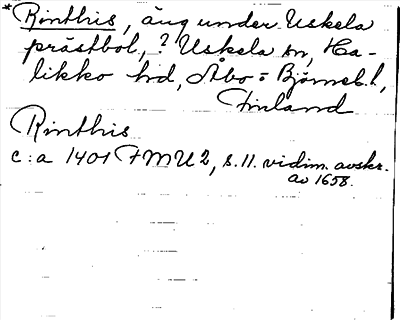 *Rinthis, äng under Uskela
prästbol, ? Uskela sn, Ha-
likko hd, Åbo = Björneb. l,
Finland
Rinthis
c:a 1401 FMU 2, s. 11. vidim. avskr.
av 1658.